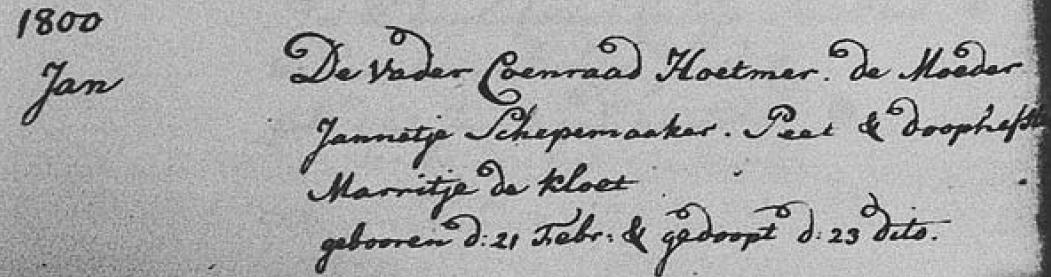 1800
Jan
De Vader Coenraad Hoetmer. de Moeder
Jannetje Schepemaaker. Peet & doophefster
Marritje de Kloet
gebooren d: 21 Febr: & gedoopt d: 23 dito.